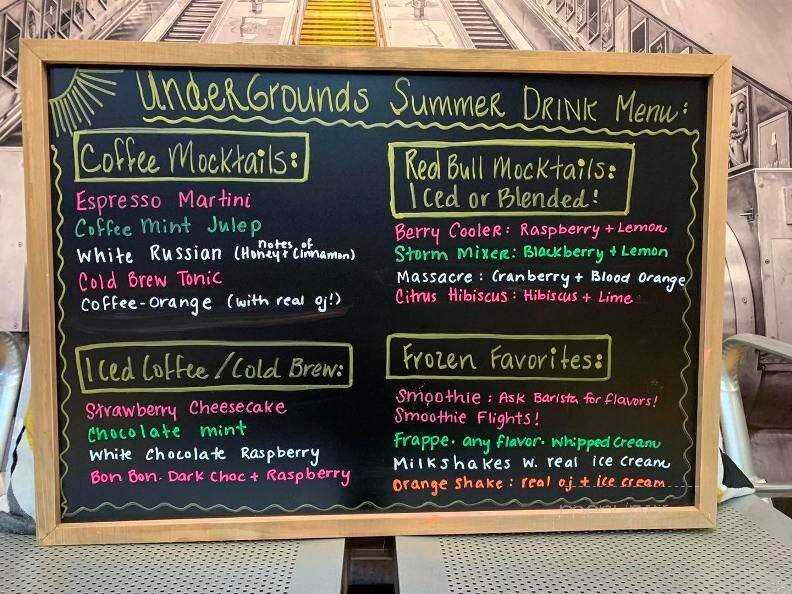 UndeRGrounds Summer DRINK Menu:
Coffee Mocktails:
Espresso Martini
Coffee Mint Julep
White Russian (notes of Honey + Cinnamon)
Cold Brew Tonic
Coffee-Orange (with real oj!)
Red Bull Mocktails:
Iced or Blended!
Berry Cooler: Raspberry + Lemon
Storm Mixer: Blackberry + Lemon
Massacre: Cranberry + Blood Orange
Citrus Hibiscus: Hibiscus + Lime
Iced Coffee/Cold Brew:
Strawberry Cheesecake
Chocolate mint
White Chocolate Raspberry
Bon Bon. Dark Choc + Raspberry
Frozen Favorites:
Smoothie: Ask Barista for flavors!
Smoothie Flights!
Frappe. any flavor. Whipped Cream
Milkshakes w. real ice cream
Orange Shake: real oj + ice cream